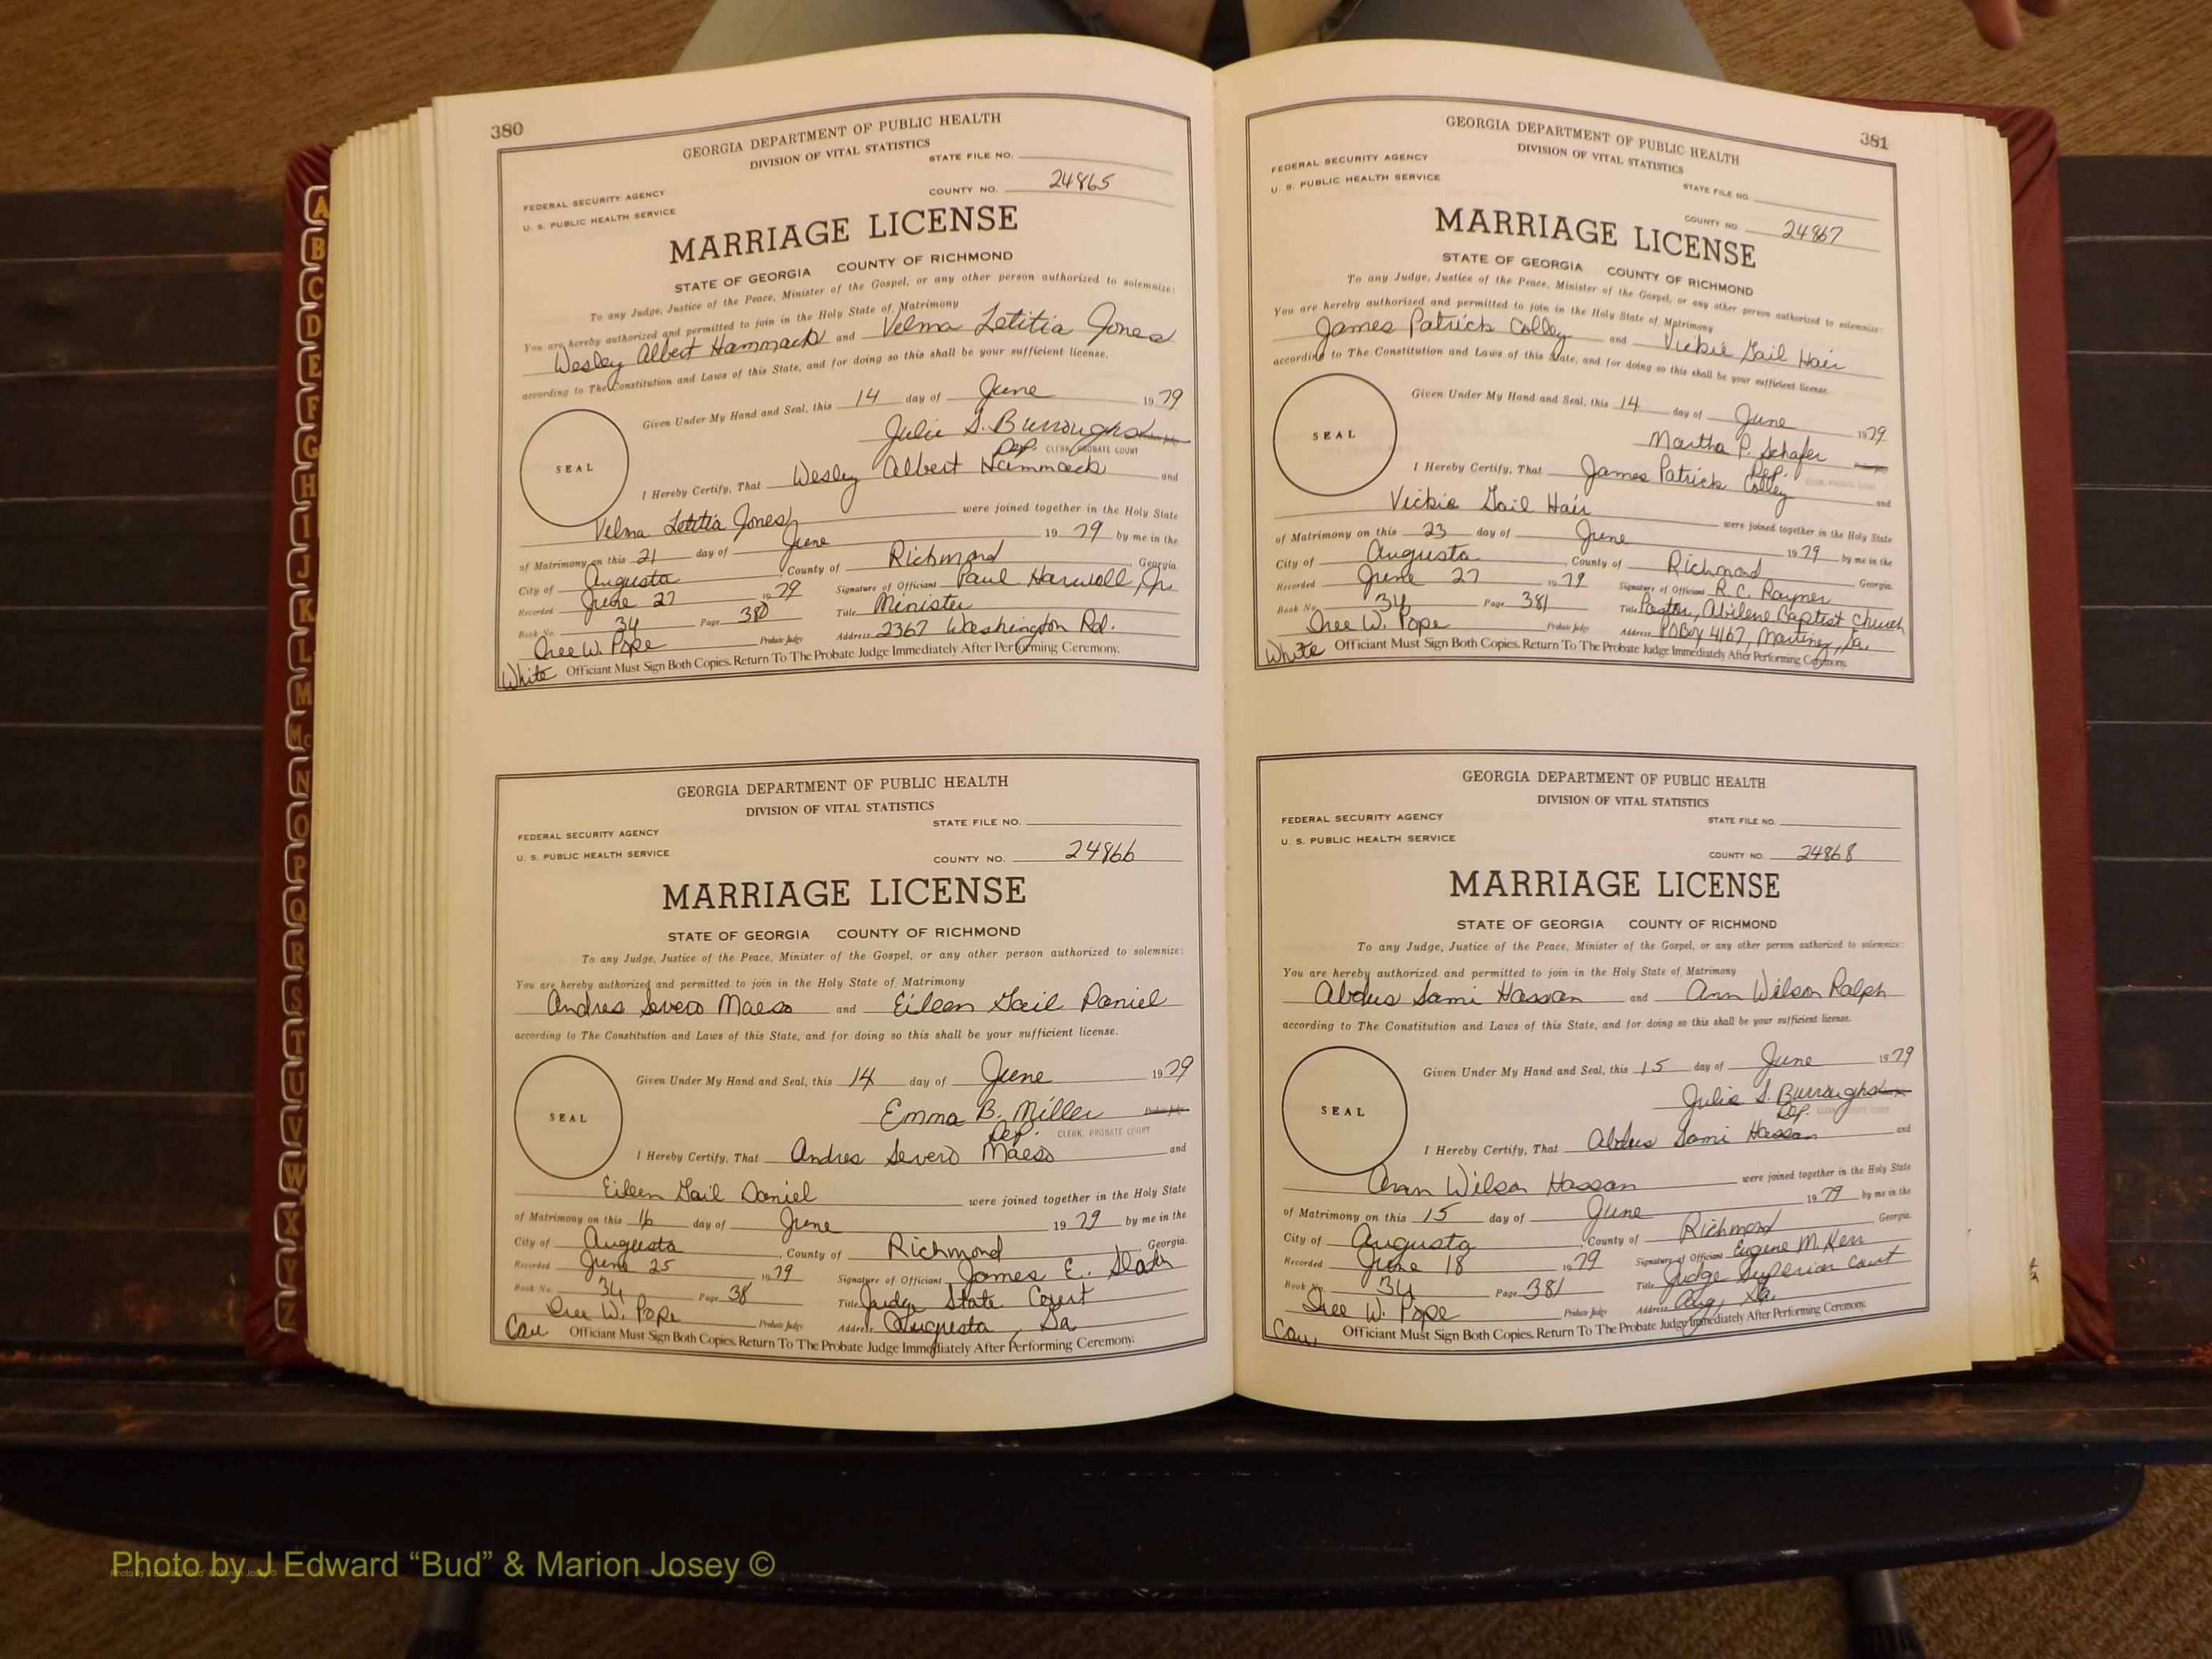 380
GEORGIA DEPARTMENT OF PUBLIC HEALTH
DIVISION OF VITAL STATISTICS
STATE FILE NO.
FEDERAL SECURITY AGENCY
U. S. PUBLIC HEALTH SERVICE
COUNTY NO. 24865
MARRIAGE LICENSE
STATE OF GEORGIA COUNTY OF RICHMOND
To any Judge, Justice of the Peace, Minister of the Gospel, or any other person authorized to solemnize:
You are hereby authorized and permitted to join in the Holy State of Matrimony
Wesley Albert Hammack and Velma Letitia Jones
according to The Constitution and Laws of this State, and for doing so this shall be your sufficient license.
Given Under My Hand and Seal, this 14 day of June 1979
Julie S. Burroughs Probate Judge
Dep. CLERK, PROBATE COURT
SEAL
I Hereby Certify, That Wesley Albert Hammack and
Velma Letitia Jones were joined together in the Holy State
of Matrimony on this 21 day of June 1979 by me in the
City of Augusta, County of Richmond, Georgia.
Recorded June 27 1979 Signature of Officiant Paul Harwell, Jr.
Book No. 34 Page 380 Title Minister
Dree W. Pope Probate Judge Address 2367 Washington Rd.
White Officiant Must Sign Both Copies. Return To The Probate Judge Immediately After Performing Ceremony.
GEORGIA DEPARTMENT OF PUBLIC HEALTH
DIVISION OF VITAL STATISTICS
STATE FILE NO.
FEDERAL SECURITY AGENCY
U. S. PUBLIC HEALTH SERVICE
COUNTY NO. 24866
MARRIAGE LICENSE
STATE OF GEORGIA COUNTY OF RICHMOND
To any Judge, Justice of the Peace, Minister of the Gospel, or any other person authorized to solemnize:
You are hereby authorized and permitted to join in the Holy State of Matrimony
Andres Severo Maeso and Eileen Gail Daniel
according to The Constitution and Laws of this State, and for doing so this shall be your sufficient license.
Given Under My Hand and Seal, this 14 day of June 1979
Emma B. Miller Probate Judge
Dep. CLERK, PROBATE COURT
SEAL
I Hereby Certify, That Andres Severo Maeso and
Eileen Gail Daniel were joined together in the Holy State
of Matrimony on this 16 day of June 1979 by me in the
City of Augusta, County of Richmond, Georgia.
Recorded June 25 1979 Signature of Officiant James E. Slaton
Book No. 34 Page 38 Title Judge State Court
Dree W. Pope Probate Judge Address Augusta, Ga
Cau Officiant Must Sign Both Copies. Return To The Probate Judge Immediately After Performing Ceremony.
381
GEORGIA DEPARTMENT OF PUBLIC HEALTH
DIVISION OF VITAL STATISTICS
FEDERAL SECURITY AGENCY
U. S. PUBLIC HEALTH SERVICE
STATE FILE NO.
COUNTY NO 24867
MARRIAGE LICENSE
STATE OF GEORGIA COUNTY OF RICHMOND
To any Judge, Justice of the Peace, Minister of the Gospel, or any other person authorized to solemnize:
You are hereby authorized and permitted to join in the Holy State of Matrimony
James Patrick Colley and Vickie Gail Hair
according to The Constitution and Laws of this State, and for doing so this shall be your sufficient license.
Given Under My Hand and Seal, this 14 day of June 1979
Martha P. Schafer Probate Judge
Dep. CLERK, PROBATE COURT
SEAL
I Hereby Certify, That James Patrick Colley and
Vickie Gail Hair were joined together in the Holy State
of Matrimony on this 23 day of June 1979 by me in the
City of Augusta, County of Richmond Georgia.
Recorded June 27 1979 Signature of Officiant R.C. Rayner
Book No. 34 Page 381 Title Pastor, Abilene Baptist Church
Dree W. Pope Probate Judge Address POBox 4167, Martinez, Ga.
White Officiant Must Sign Both Copies. Return To The Probate Judge Immediately After Performing Ceremony.
GEORGIA DEPARTMENT OF PUBLIC HEALTH
DIVISION OF VITAL STATISTICS
FEDERAL SECURITY AGENCY
STATE FILE NO.
U. S. PUBLIC HEALTH SERVICE
COUNTY NO. 24868
MARRIAGE LICENSE
STATE OF GEORGIA COUNTY OF RICHMOND
To any Judge, Justice of the Peace, Minister of the Gospel, or any other person authorized to solemnize:
You are hereby authorized and permitted to join in the Holy State of Matrimony
Abdus Sami Hassan and Ann Wilson Ralph
according to The Constitution and Laws of this State, and for doing so this shall be your sufficient license.
Given Under My Hand and Seal, this 15 day of June 1979
Julie S. Burroughs
Dep. CLERK, PROBATE COURT
SEAL
I Hereby Certify, That Abdus Sami Hassan and
Ann Wilson Hassan were joined together in the Holy State
of Matrimony on this 15 day of June 1979 by me in the
City of Augusta, County of Richmond Georgia.
Recorded June 18 1979 Signature of Officiant Eugene M. Kerr
Book No. 34 Page 381 Title Judge Superior Court
Dree W. Pope Probate Judge Address Aug, Ga.
Cau, Officiant Must Sign Both Copies. Return To The Probate Judge Immediately After Performing Ceremony.
A
B
C
D
E
F
G
H
I
J
K
L
M
Mc
N
O
P
Q
R
S
T
U
V
W
X
Y
Z
Photo by J Edward “Bud” & Marion Josey ©
Photo by J Edward “Bud” & Marion Josey ©